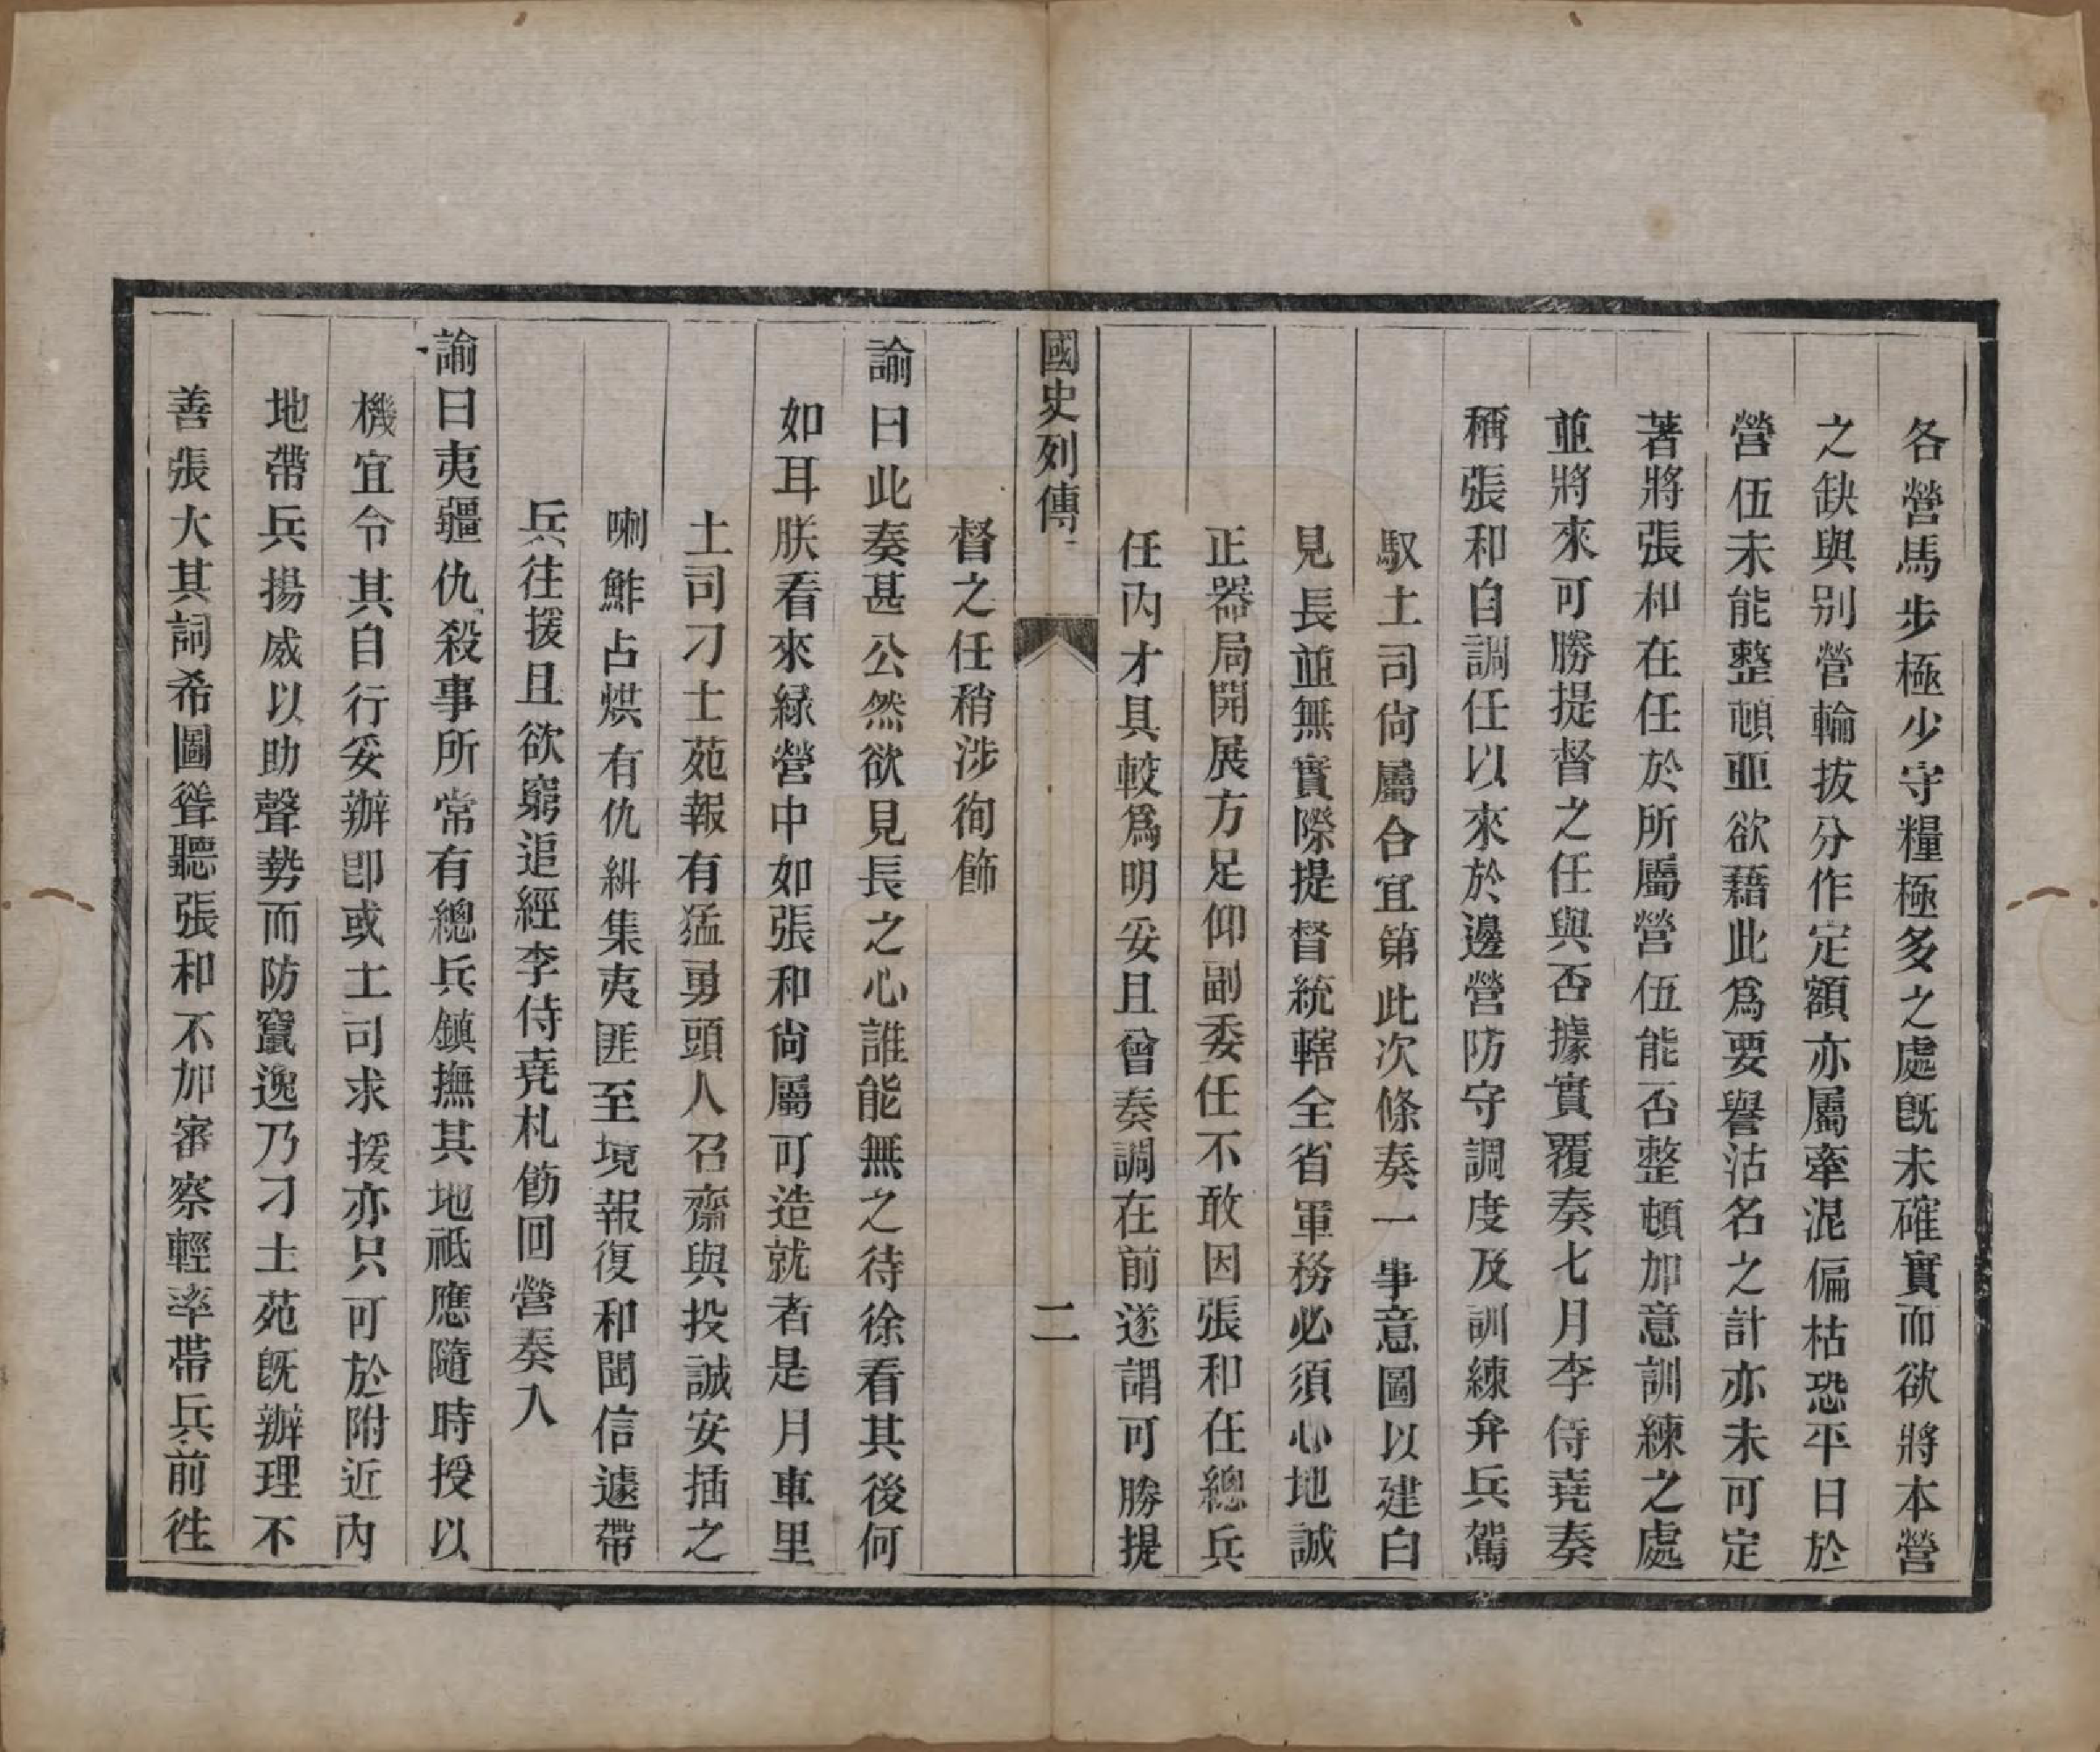 各營馬步極少守糧極多之處既未確實而欲將本營
之缺與别營輪拔分作定額亦屬牽混偏枯恐平日於
營伍未能整頓並欲藉此爲要譽沽名之計亦未可定
著將張和在任於所屬營伍能否整頓加意訓練之處
並將來可勝提督之任與否據實覆奏七月李侍堯奏
稱張和自調任以來於邊營防守調度及訓練弁兵駕
馭土司尙屬合宜第此次條奏一事意圖以建白
見長並無實際提督統轄全省軍務必須心地誠
正器局開展方足仰副委任不敢因張和在任總兵
任內才具較爲明妥且曾奏調在前遂謂可勝提
國史列傳
二
督之任稍涉徇飾
諭曰此奏甚公然欲見長之心誰能無之待徐看其後何
如耳朕看來綠營中如張和尙屬可造就者是月車里
土司刁士苑報有猛勇頭人召齋與投誠安插之
喇鮓占烘有仇糾集夷匪至境報復和聞信遽帶
兵往援且欲窮追經李侍堯札飭回營奏入
諭曰夷疆仇殺事所常有總兵鎮撫其地祇應隨時授以
機宜令其自行妥辦卽或土司求援亦只可於附近內
地帶兵揚威以助聲勢而防竄逸乃刁士苑既辦理不
善張大其詞希圖聳聽張和不加審察輕率帶兵前往